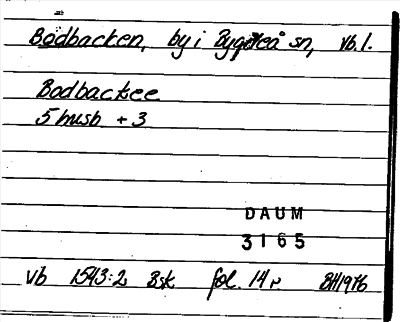 Bodbacken, by i Bygdeå sn, Vb.l.
Bodbackee
5 husb + 3
DAUM
3165
Vb 1543:2 Bsk fol. 14 r BH1976